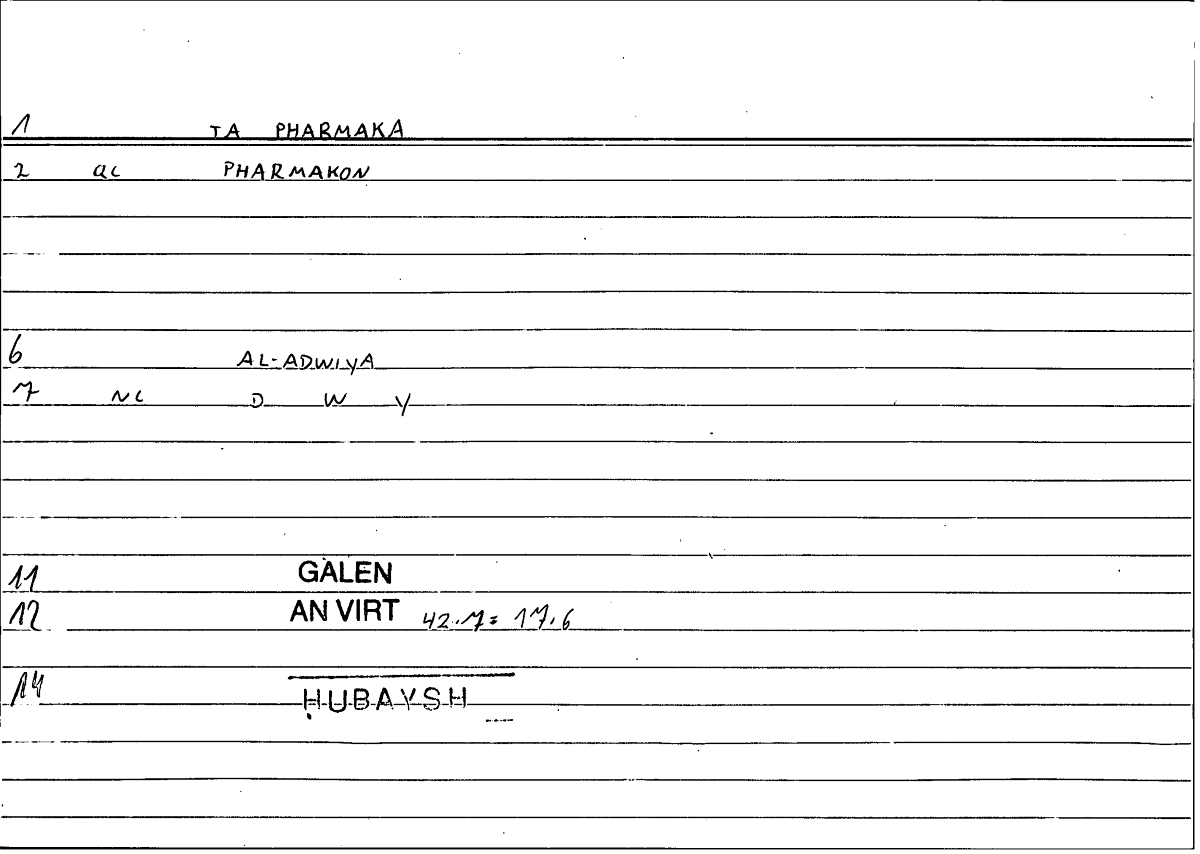 1 TA PHARMAKA
2 QC PHARMAKON
6 AL-ADWIYA
7 NC D W Y
11 GALEN
12 AN VIRT 42.7 = 17.6
14 ḤUBAYSH